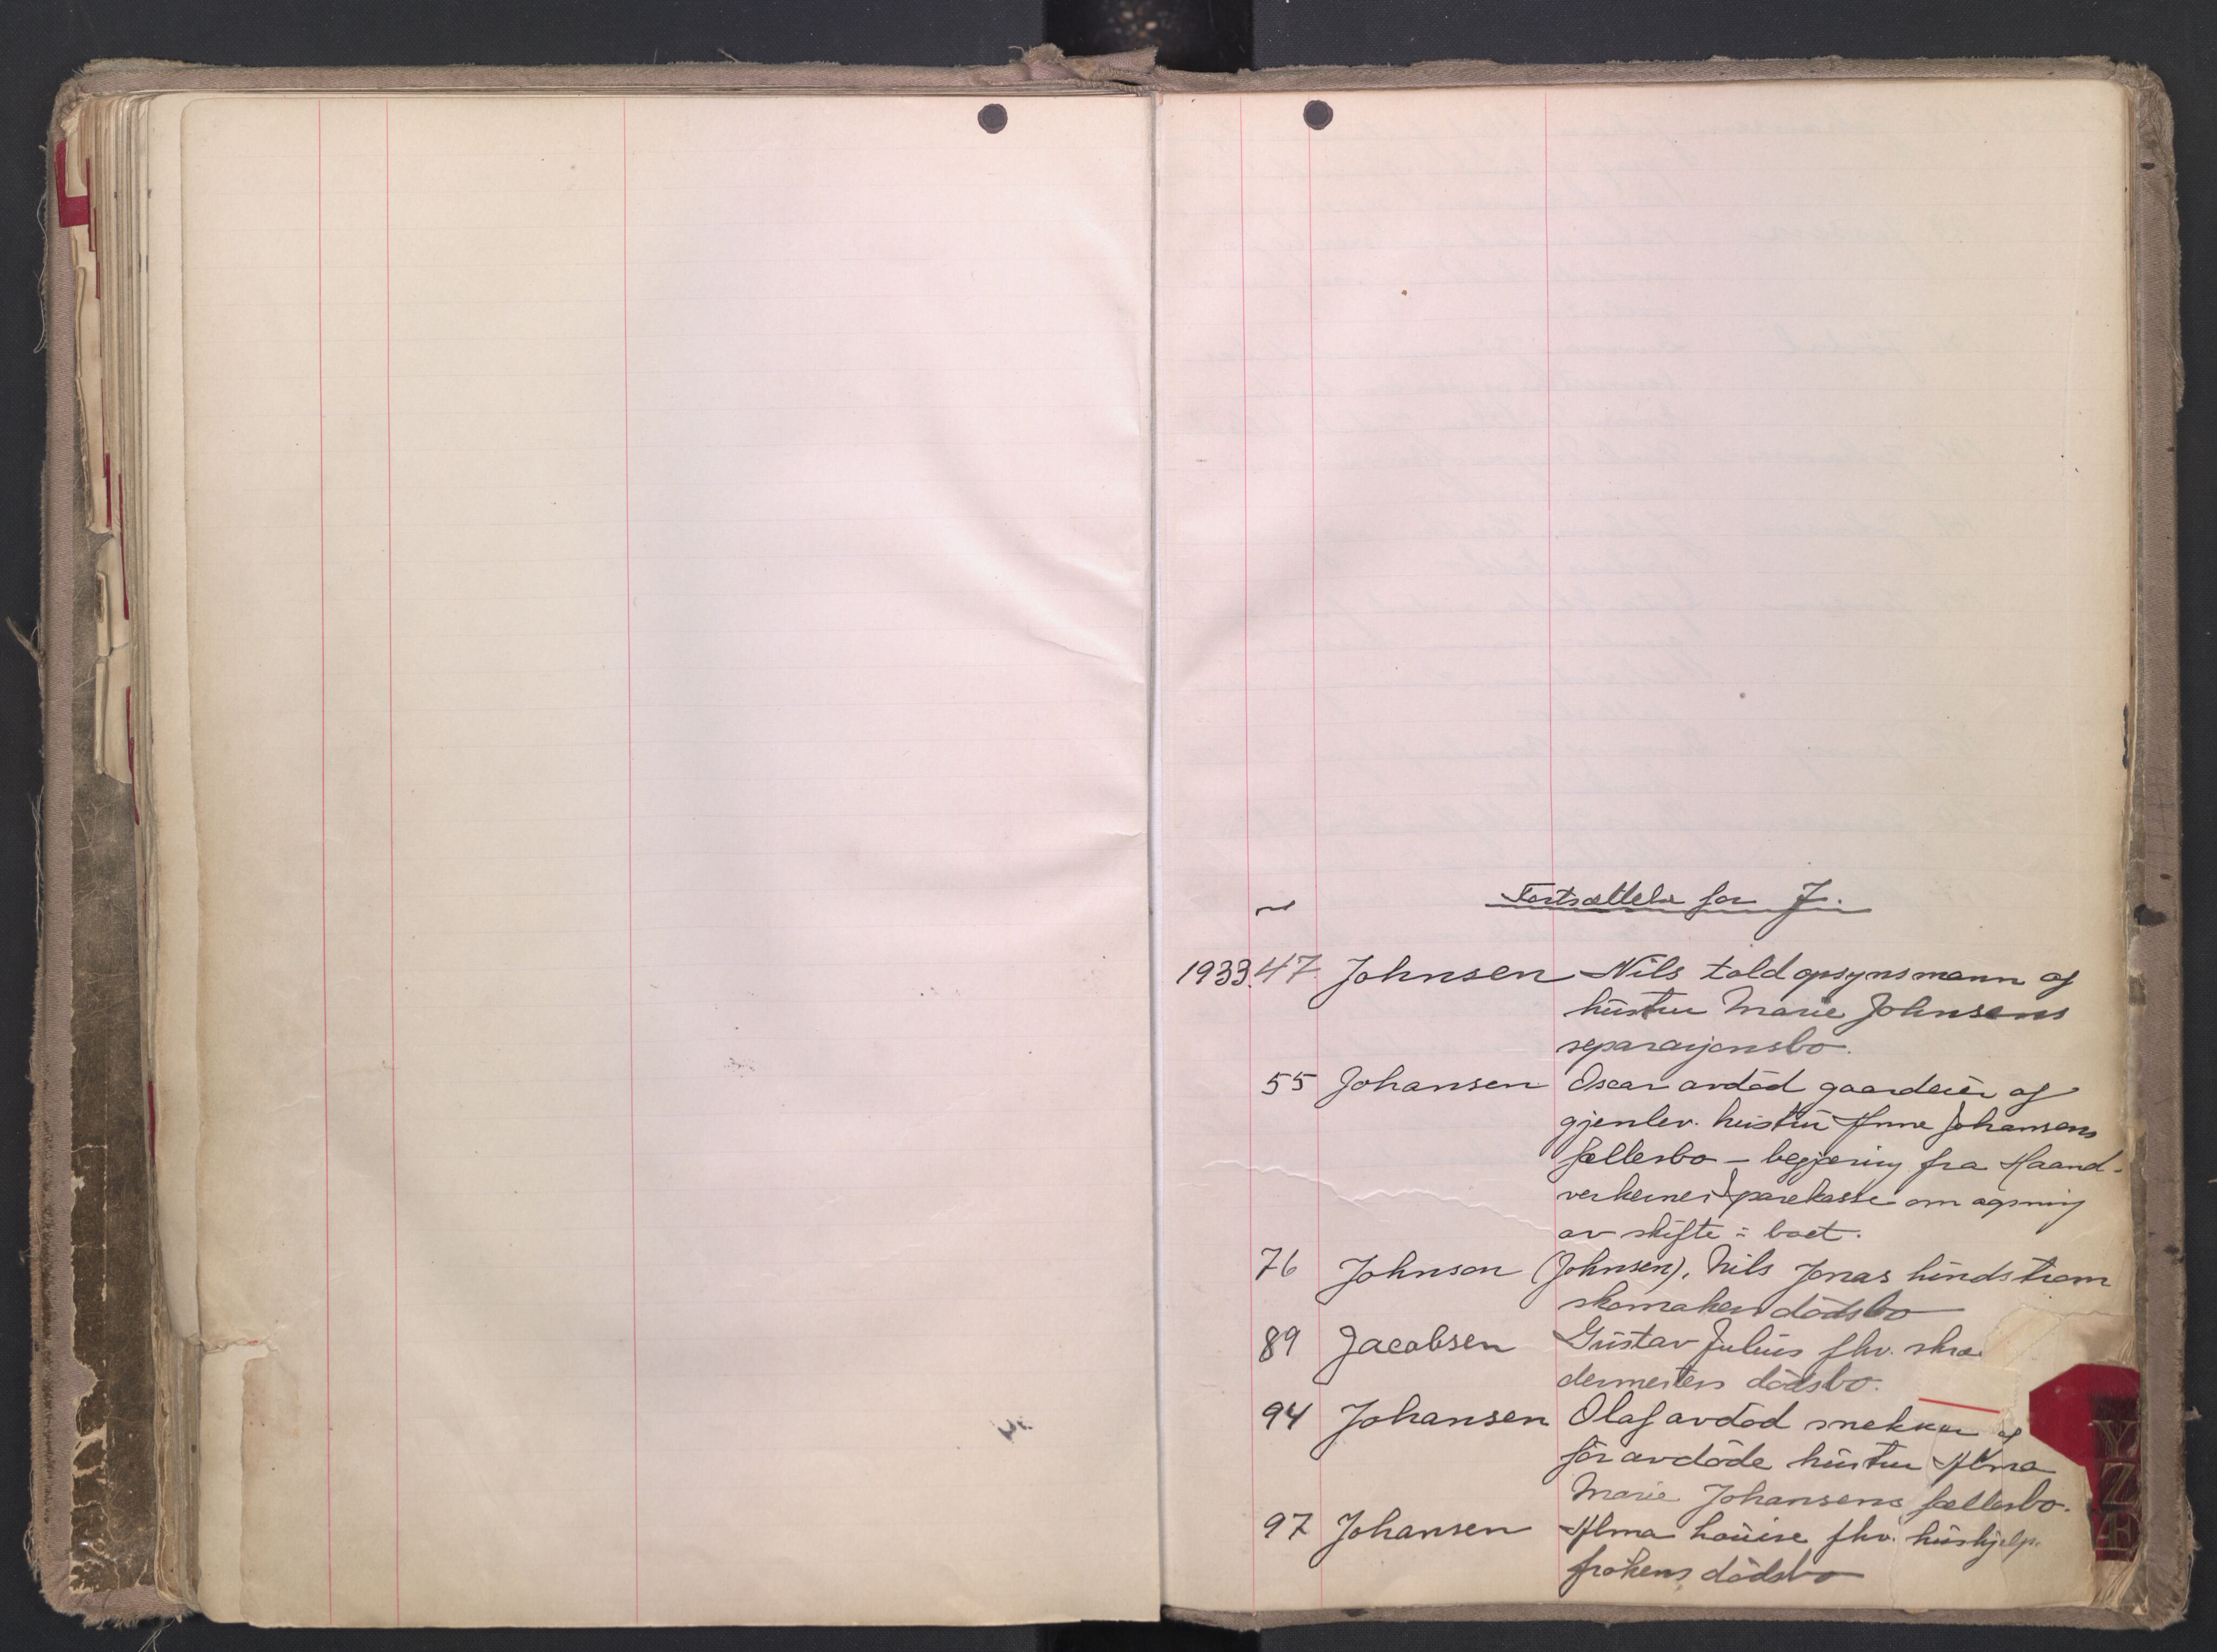 Fortsættelse for J.
1933. 47 Johnsen Nils toldopsynsmann og
hustru Marie Johnsens
separasjonsbo.
55 Johansen Oscar avdöd gaardeier og
gjenlev. hustru Anna Johansens
fællesbo – begjæring fra Haand-
verkernes Sparekasse om
av skifte i boet.
76 Johnson (Johnsen), Nils Jonas Lindstrøm
skomakers dödsbo
89 Jacobsen Gustav Julius fhv. skræ
dermesters dödsbo.
94 Johansen Olaf avdöd snekker og
för avdöde hustru Alma
Marie Johansens fællesbo.
97 Johansen Alma Louise fhv. hushjelp.
frökens dödsbo
Y
Z
Æ